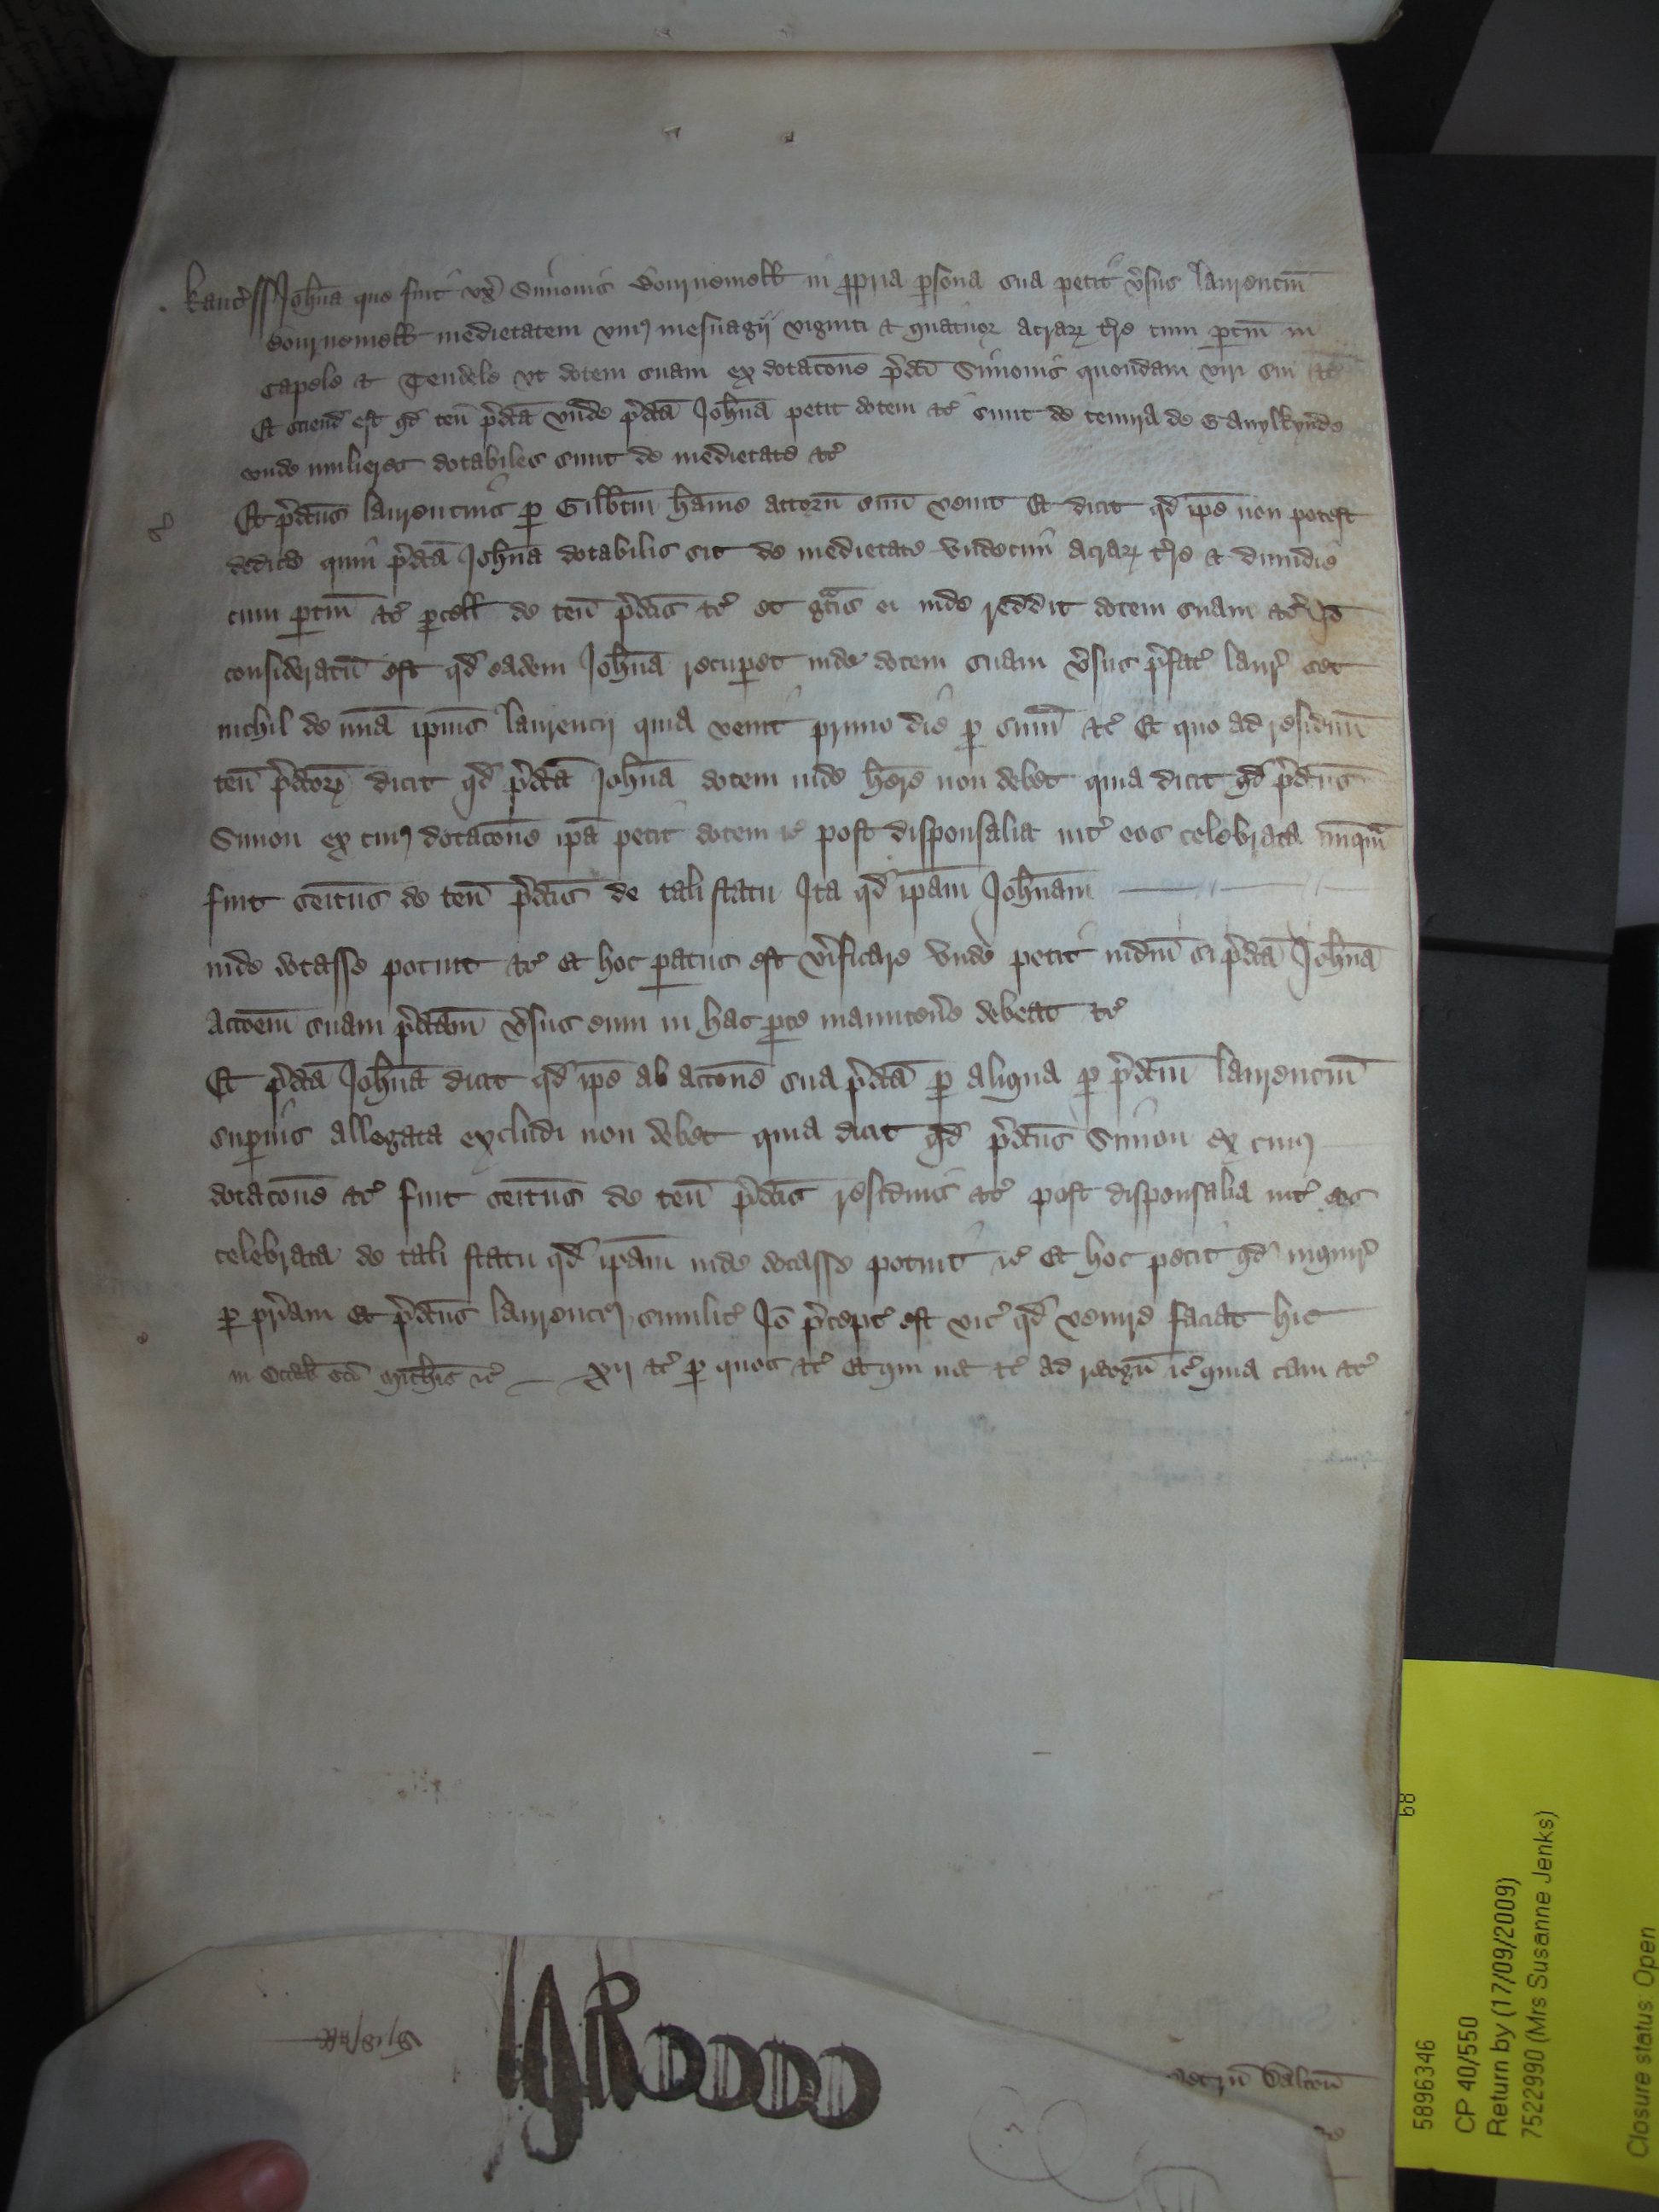 kanc̃ ss Joh̃na que fuit vx̃ Simonis Bournemell in ꝓpria ꝑsona sua petit ṽsus laurenciũ
Bournemell medietatem vniꝰ mesuagij viginti & quatuor acraꝝ t̃re cum ꝑtiñ in
Capele & ut dotem suam ex dotac̃one p̃dc̃i Simonis quondam viri sui &c̃
Et sciend̃ est qd̃ teñ p̃dc̃a vnde p̃dc̃a Joh̃na petit dotem &c̃ sunt de tenura de Gauylkynde
vnde mulieres dotabiles sunt de medietate &c̃
Et p̃dc̃us laurencius ꝑ Gilbt̃m hamẽ attorñ suũ venit Et dicit qd̃ ip̃e non potest
dedic̃e quin p̃dc̃a Joh̃na dotabilis sit de medietate vndecim acraꝝ t̃re & dimidie
cum ꝑtiñ &c̃ ꝑcell de teñ p̃dc̃is &c̃ et gr̃atis ei inde reddit dotem suam &c̃ Iõ
consideratũ est qd̃ eadem Joh̃na recuꝑet inde dotem suam ṽsus p̃fat̃ laur̃ set
nichil de mĩa ip̃ius laurencij quia venit primo die ꝑ sum̃ &c̃ Et quo ad residuũ
teñ p̃dc̃orꝝ dicit qd̃ p̃dc̃a Joh̃na dotem inde her̃e non debet quia dicit qd̃ p̃dc̃us
Simon ex cuiꝰ dotac̃one ip̃a petit dotem &c̃ post disponsalia int̃ eos celebrata nunqã
fuit sei̇tus de teñ p̃dc̃is de tali statu Ita qd̃ ip̃am Joh̃nam
inde dotasse potuit &c̃ et hoc ꝑatus est ṽificare vnde petit iudiciũ si p̃dc̃a Joh̃na
acc̃oem suam p̃dc̃am ṽsus eum in hac ꝑte manuteñe debeat &c̃
Et p̃dc̃a Joh̃na dicit qd̃ ip̃e ab acc̃one sua p̃dc̃a ꝑ aliqua ꝑ p̃dc̃m laurenciũ
suꝑius allegata excludi non debet quia dicit qd̃ p̃dc̃us Simon ex cuiꝰ
dotac̃one &c̃ fuit seĩtus de teñ p̃dc̃is residuis &c̃ post disponsalia int̃ eos
celebrata de tali statu qd̃ ip̃am inde dotasse potuit &c̃ Et hoc petit qd̃ inquir̃
ꝑ pr̃iam Et p̃dc̃us laurenciꝰ similit̃ Iõ p̃cept̃ est vic̃ qd̃ venire faciat hic
in Octab̃ sc̃i Mich̃is &c̃ xij &c̃ ꝑ quos &c̃ Et qui nec &c̃ ad recogñ &c̃ quia tam &c̃
5896346
CP 40/550
Return by (17/09/2009)
7522990 (Mrs Susanne Jenks)
Closure status: Open